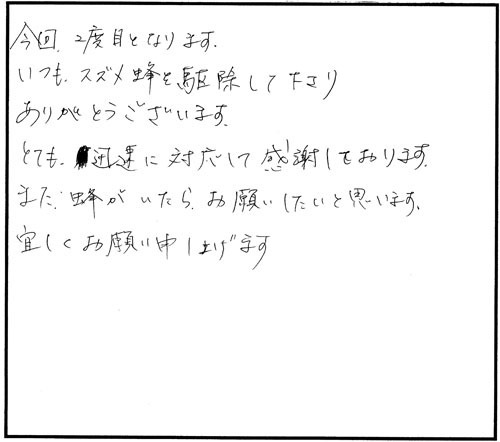 今回、2度目となります。
いつも、スズメ蜂を駆除して下さり
ありがとうございます。
とても、迅速に対応して感謝しております。
また、蜂がいたら、お願いしたいと思います。
宜しくお願い申し上げます